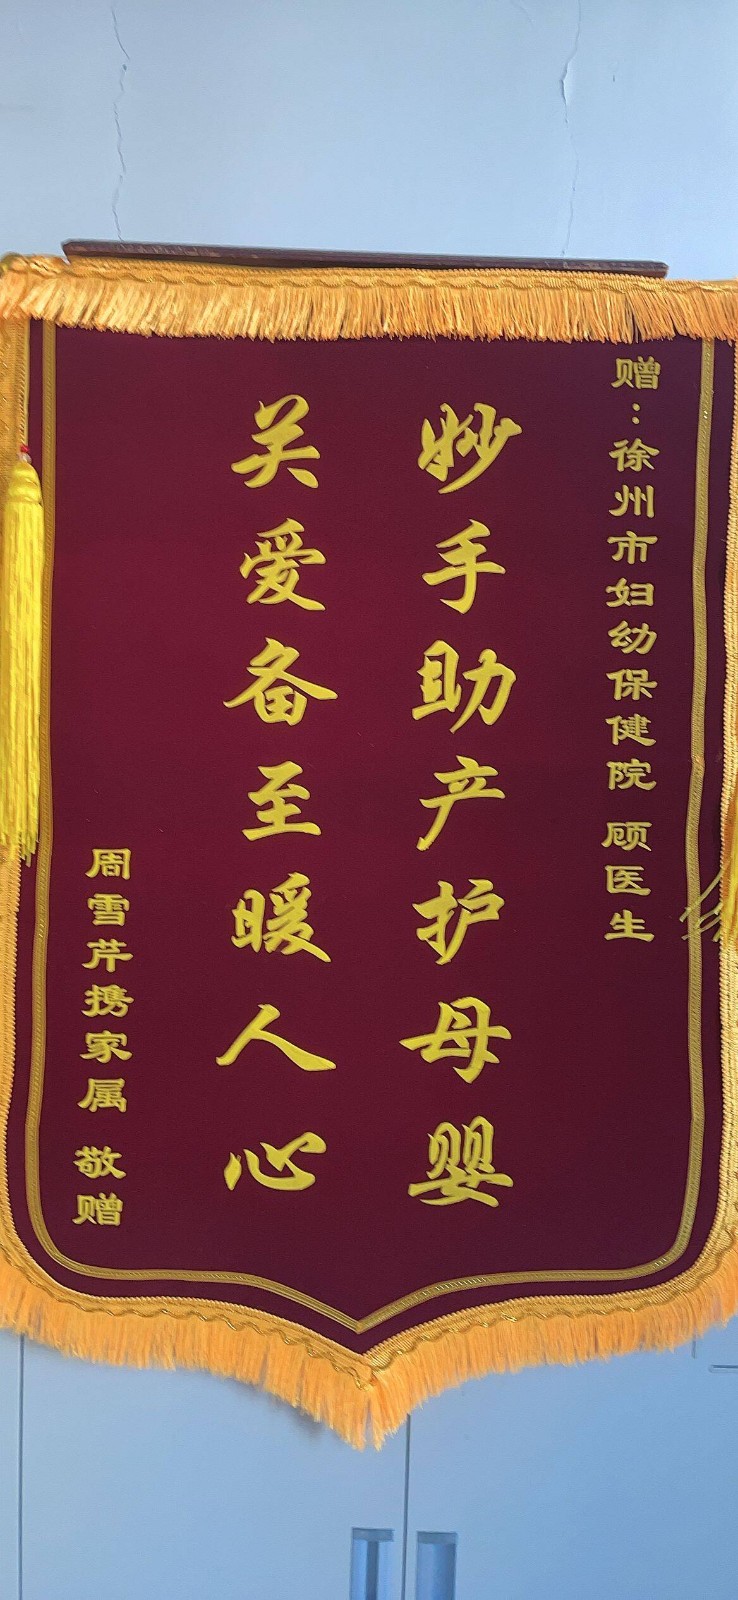 赠：徐州市妇幼保健院 顾医生
妙手助产护母婴
关爱备至暖人心
周雪芹携家属 敬赠